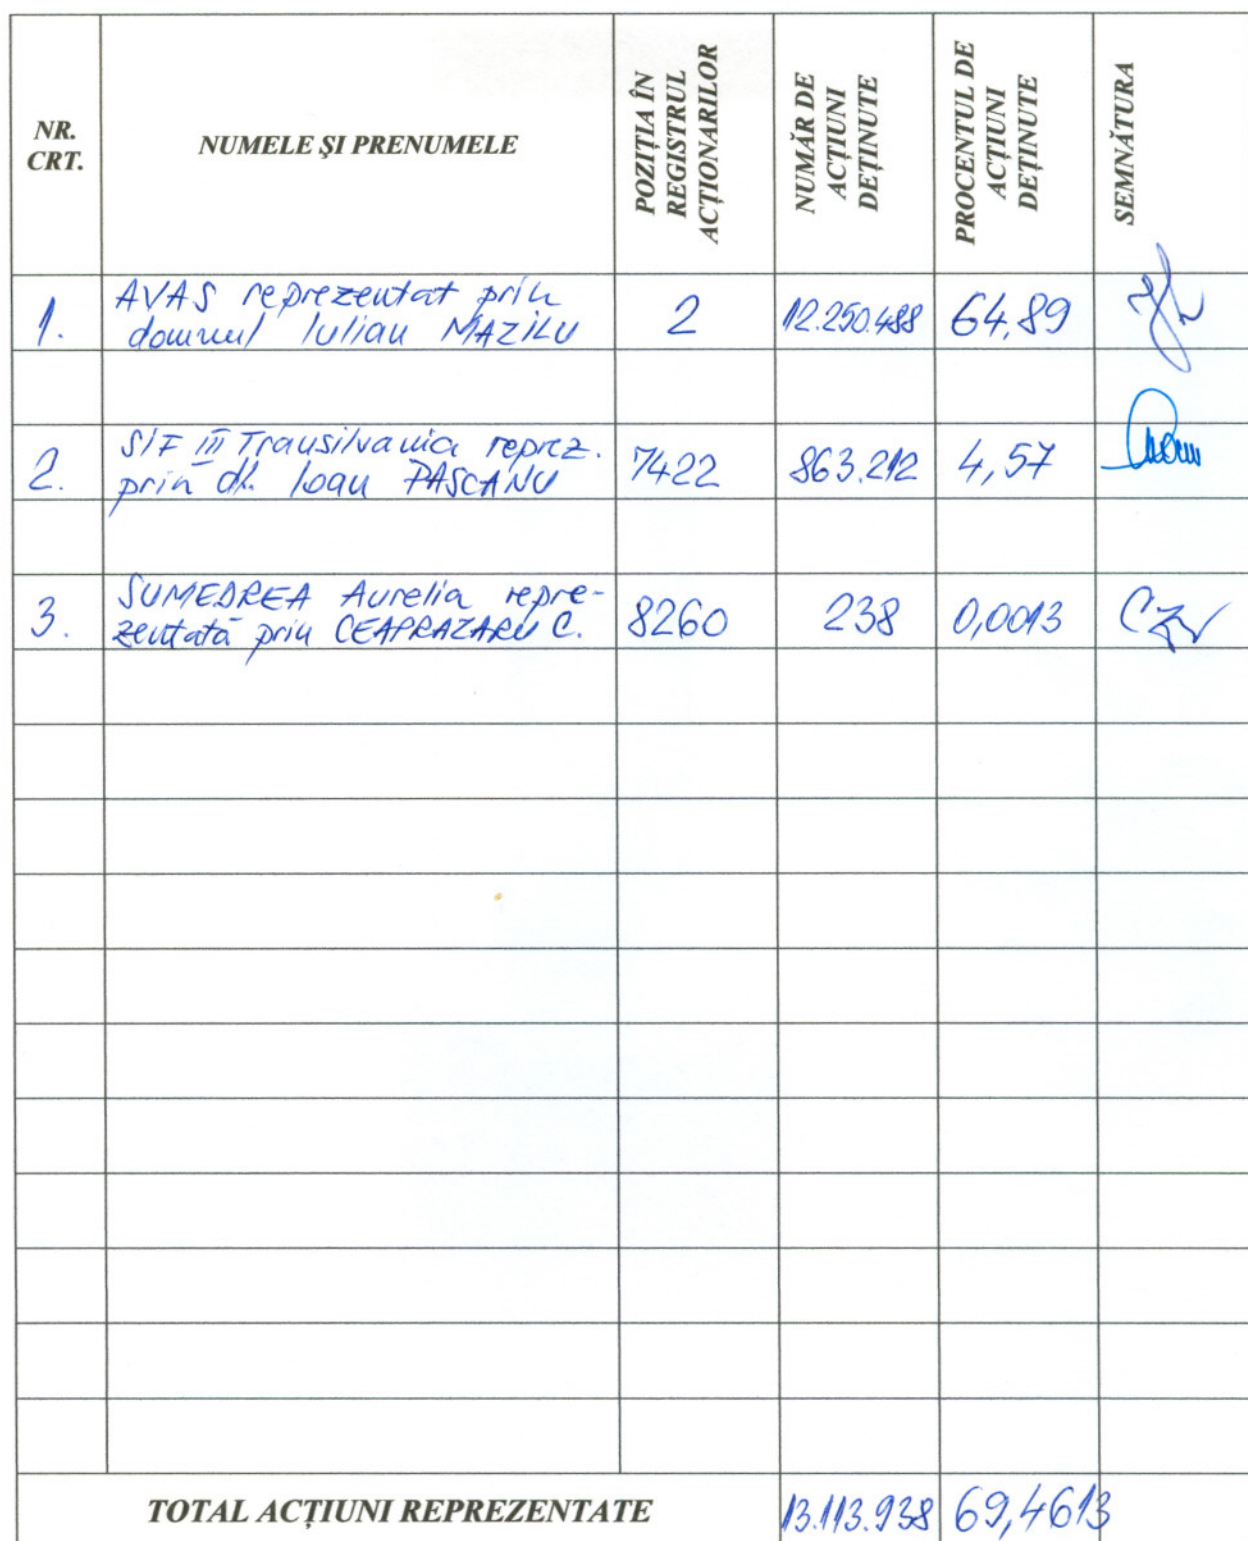 NR.
CRT.
NUMELE ŞI PRENUMELE
POZIŢIA ÎN
REGISTRUL
ACŢIONARILOR
NUMĂR DE
ACŢIUNI
DEŢINUTE
PROCENTUL DE
ACŢIUNI
DEŢINUTE
SEMNĂTURA
1.
AVAS reprezentat prin
domnul Iulian MAZILU
2
12.250.488
64,89
2.
SIF III Transilvania reprez.
prin dl. Ioan PASCANU
7422
863.212
4,57
3.
SUMEDREA Aurelia repre-
zentată prin CEAPRAZARU C.
8260
238
0,0013
TOTAL ACŢIUNI REPREZENTATE
13.113.938
69,4613